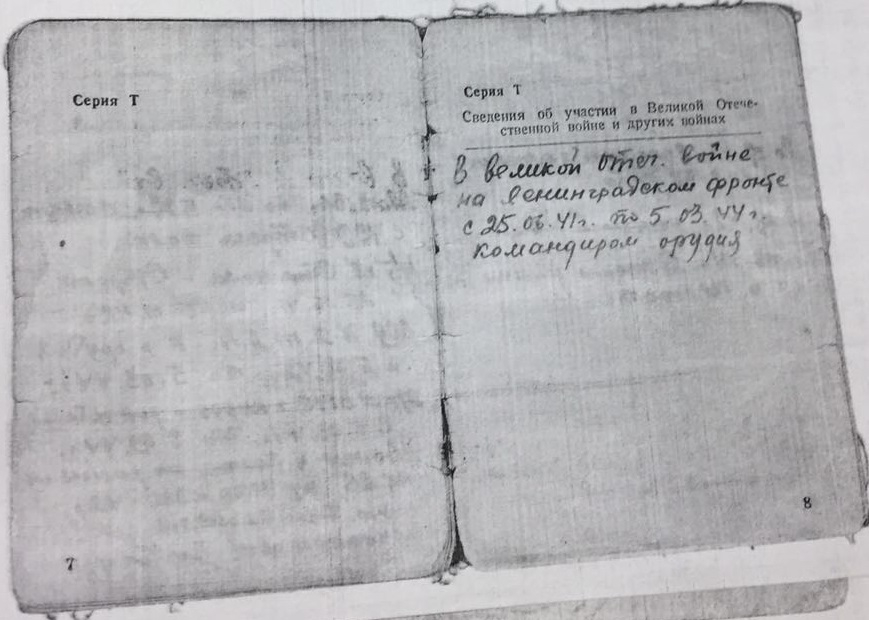 Серия Т
7
Серия Т
Сведения об участии в Великой Отече-
ственной войне и других войнах
В великой отеч. войне
на ленинградском фронте
с 25.06.41г. по 5.03.44г.
командиром орудия
8